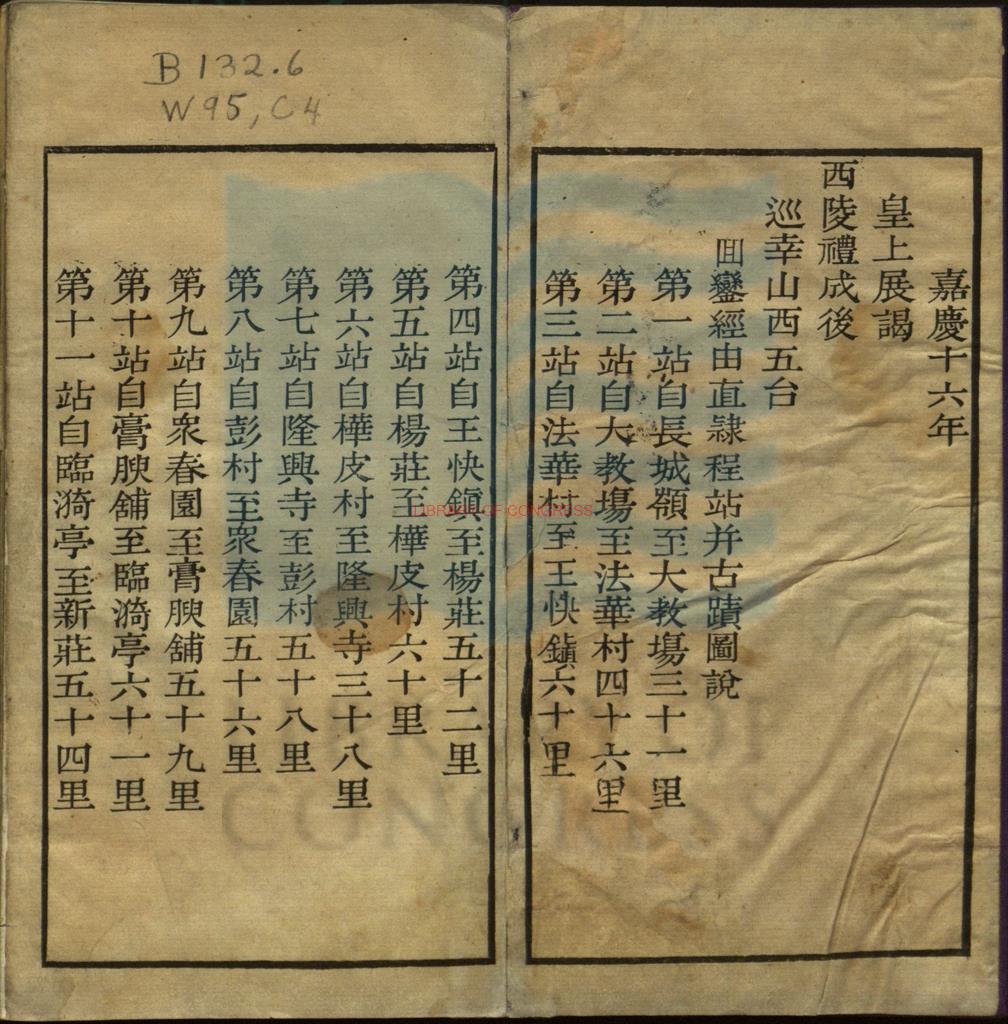 嘉慶十六年
皇上展謁
西陵禮成後
巡幸山西五台
回鑾經由直隸程站并古蹟圖說
第一站自長城嶺至大教塲三十一里
第二站自大教塲至法華村四十六里
第三站自法華村至王快鎭六十里
第四站自王快鎭至楊莊五十二里
第五站自楊莊至樺皮村六十里
第六站自樺皮村至隆興寺三十八里
第七站自隆興寺至彭村五十八里
第八站自彭村至衆春園五十六里
第九站自衆春園至膏腴舖五十九里
第十站自膏腴舖至臨漪亭六十一里
第十一站自臨漪亭至新莊五十四里
B 132.6
W95, C4
LIBRARY OF CONGRESS